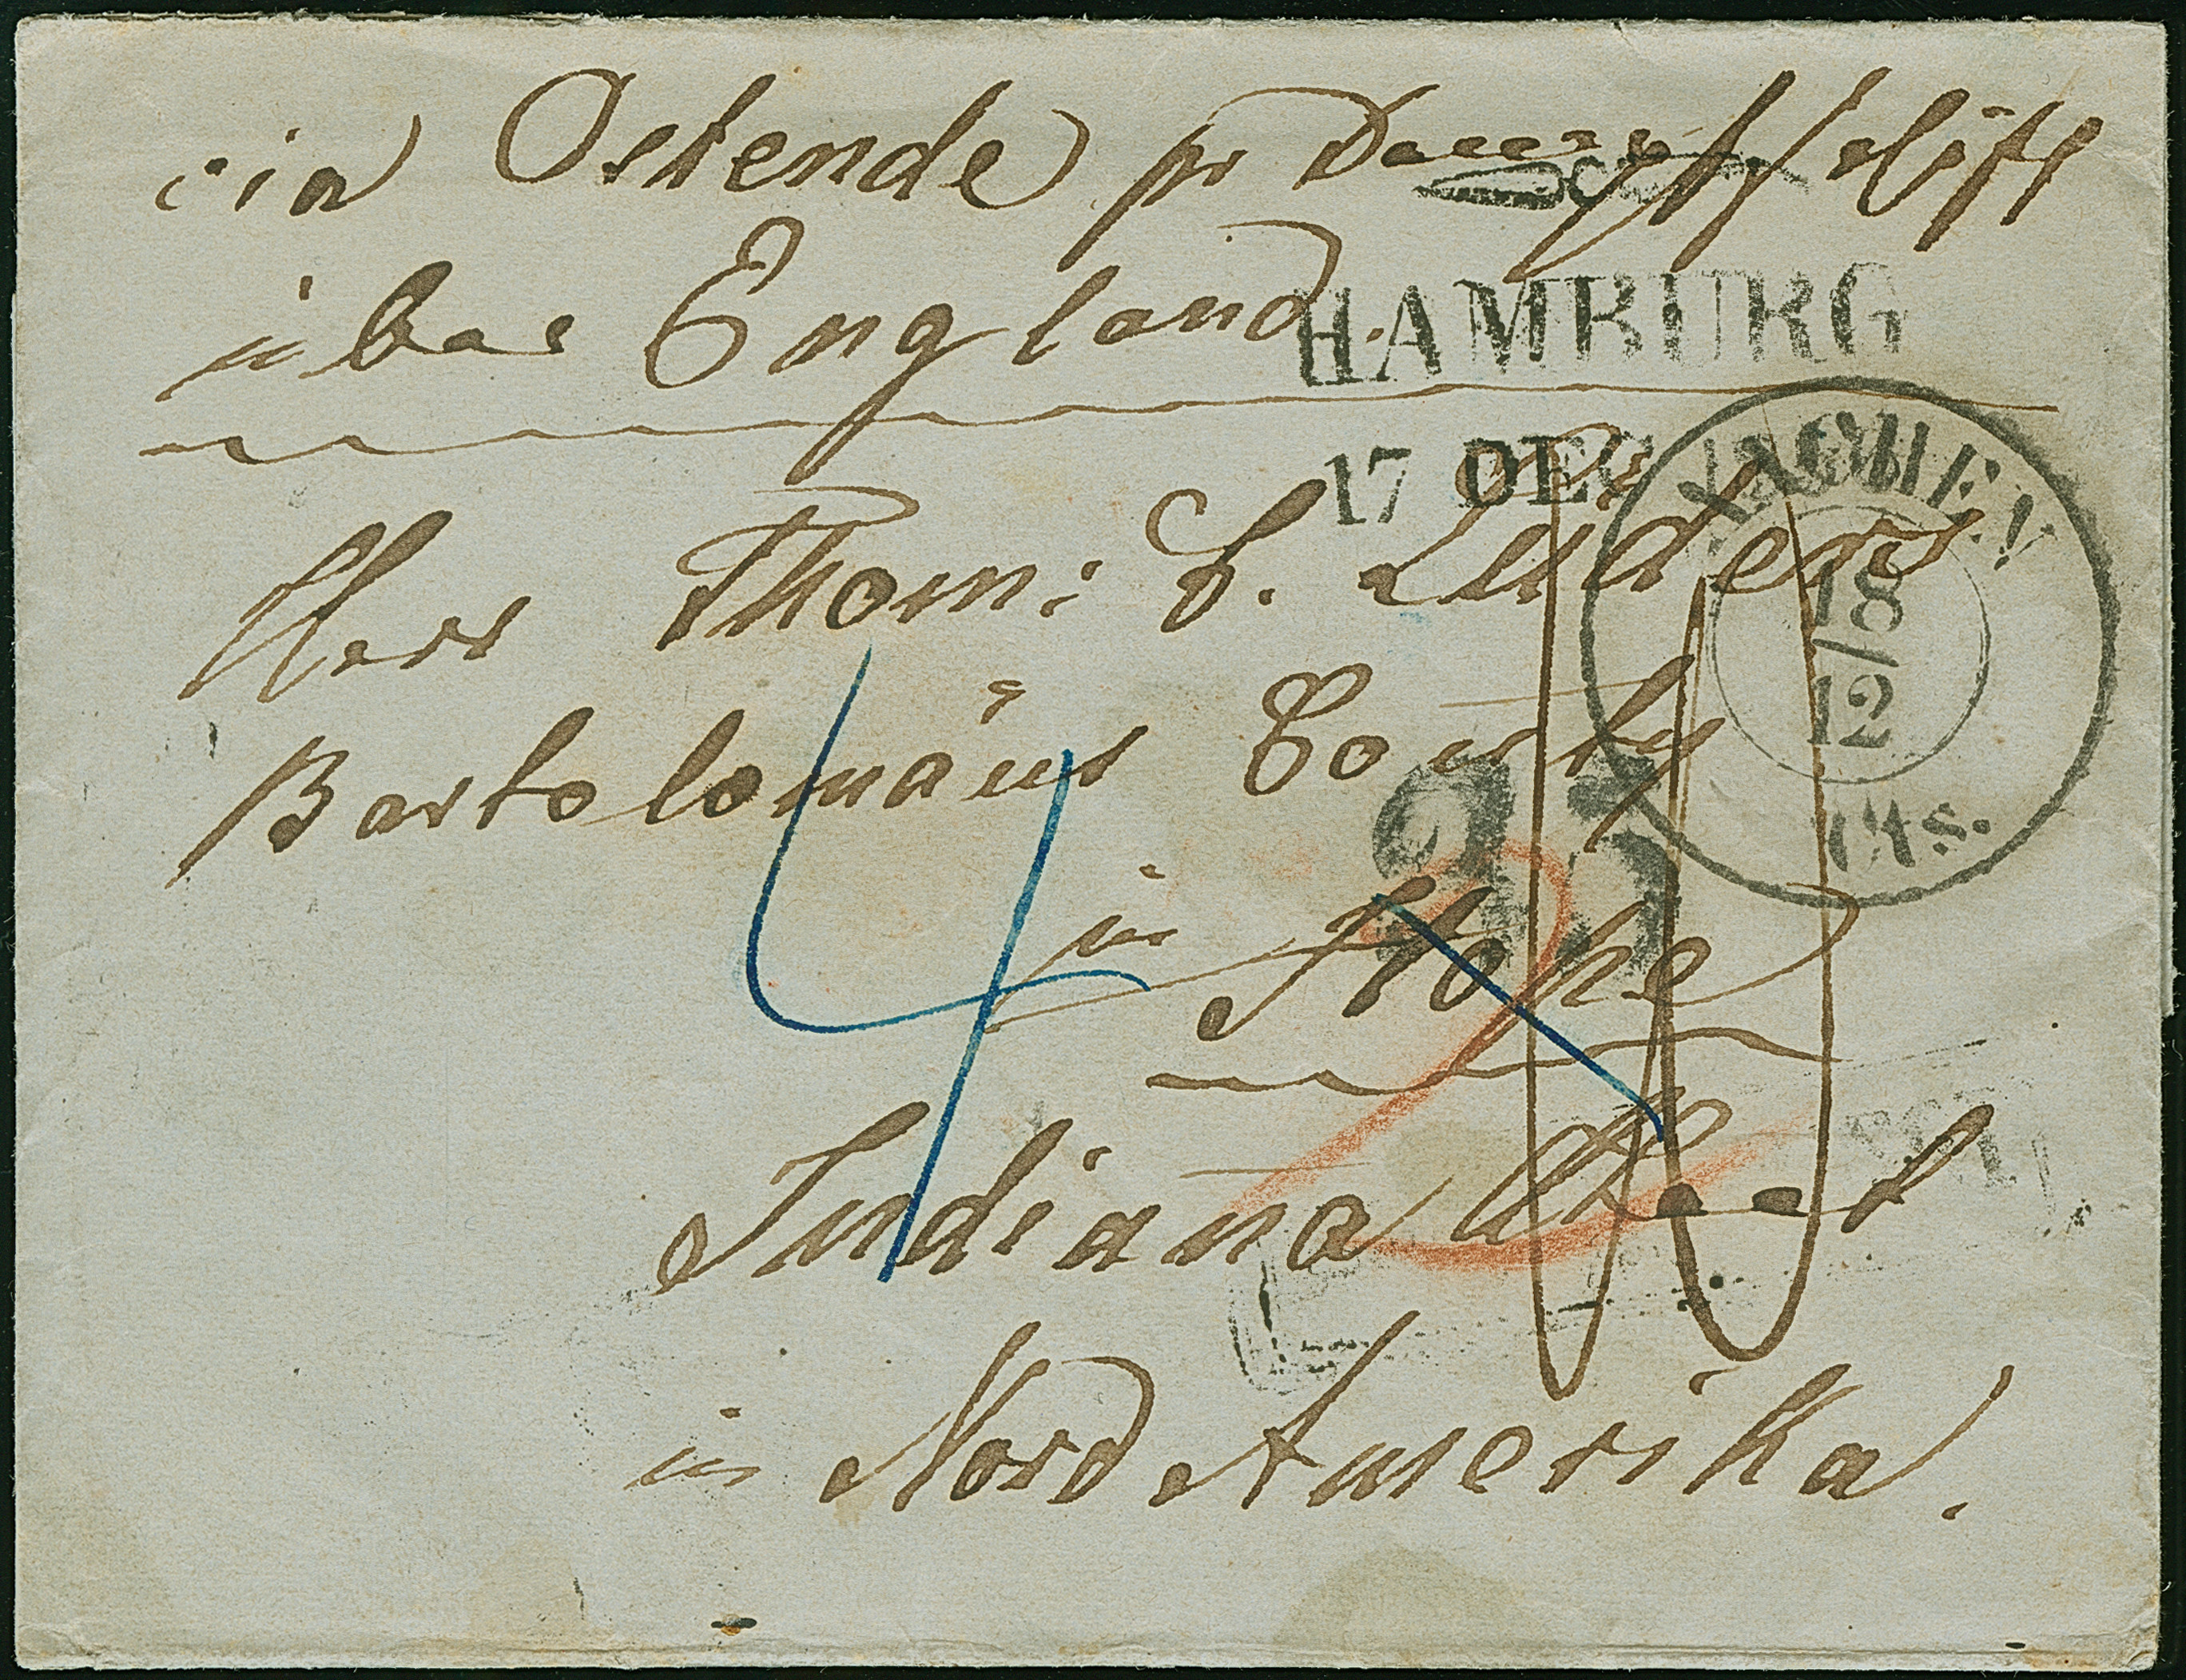 via Ostende pr Dampfschiff
über England.
HAMBURG
17 DEC
AACHEN
18/12
Cts.
Herr Thom: L. Lüders
Bartolomäus County
25
4
in Hope
Indiana Staat
in Nord Amerika.